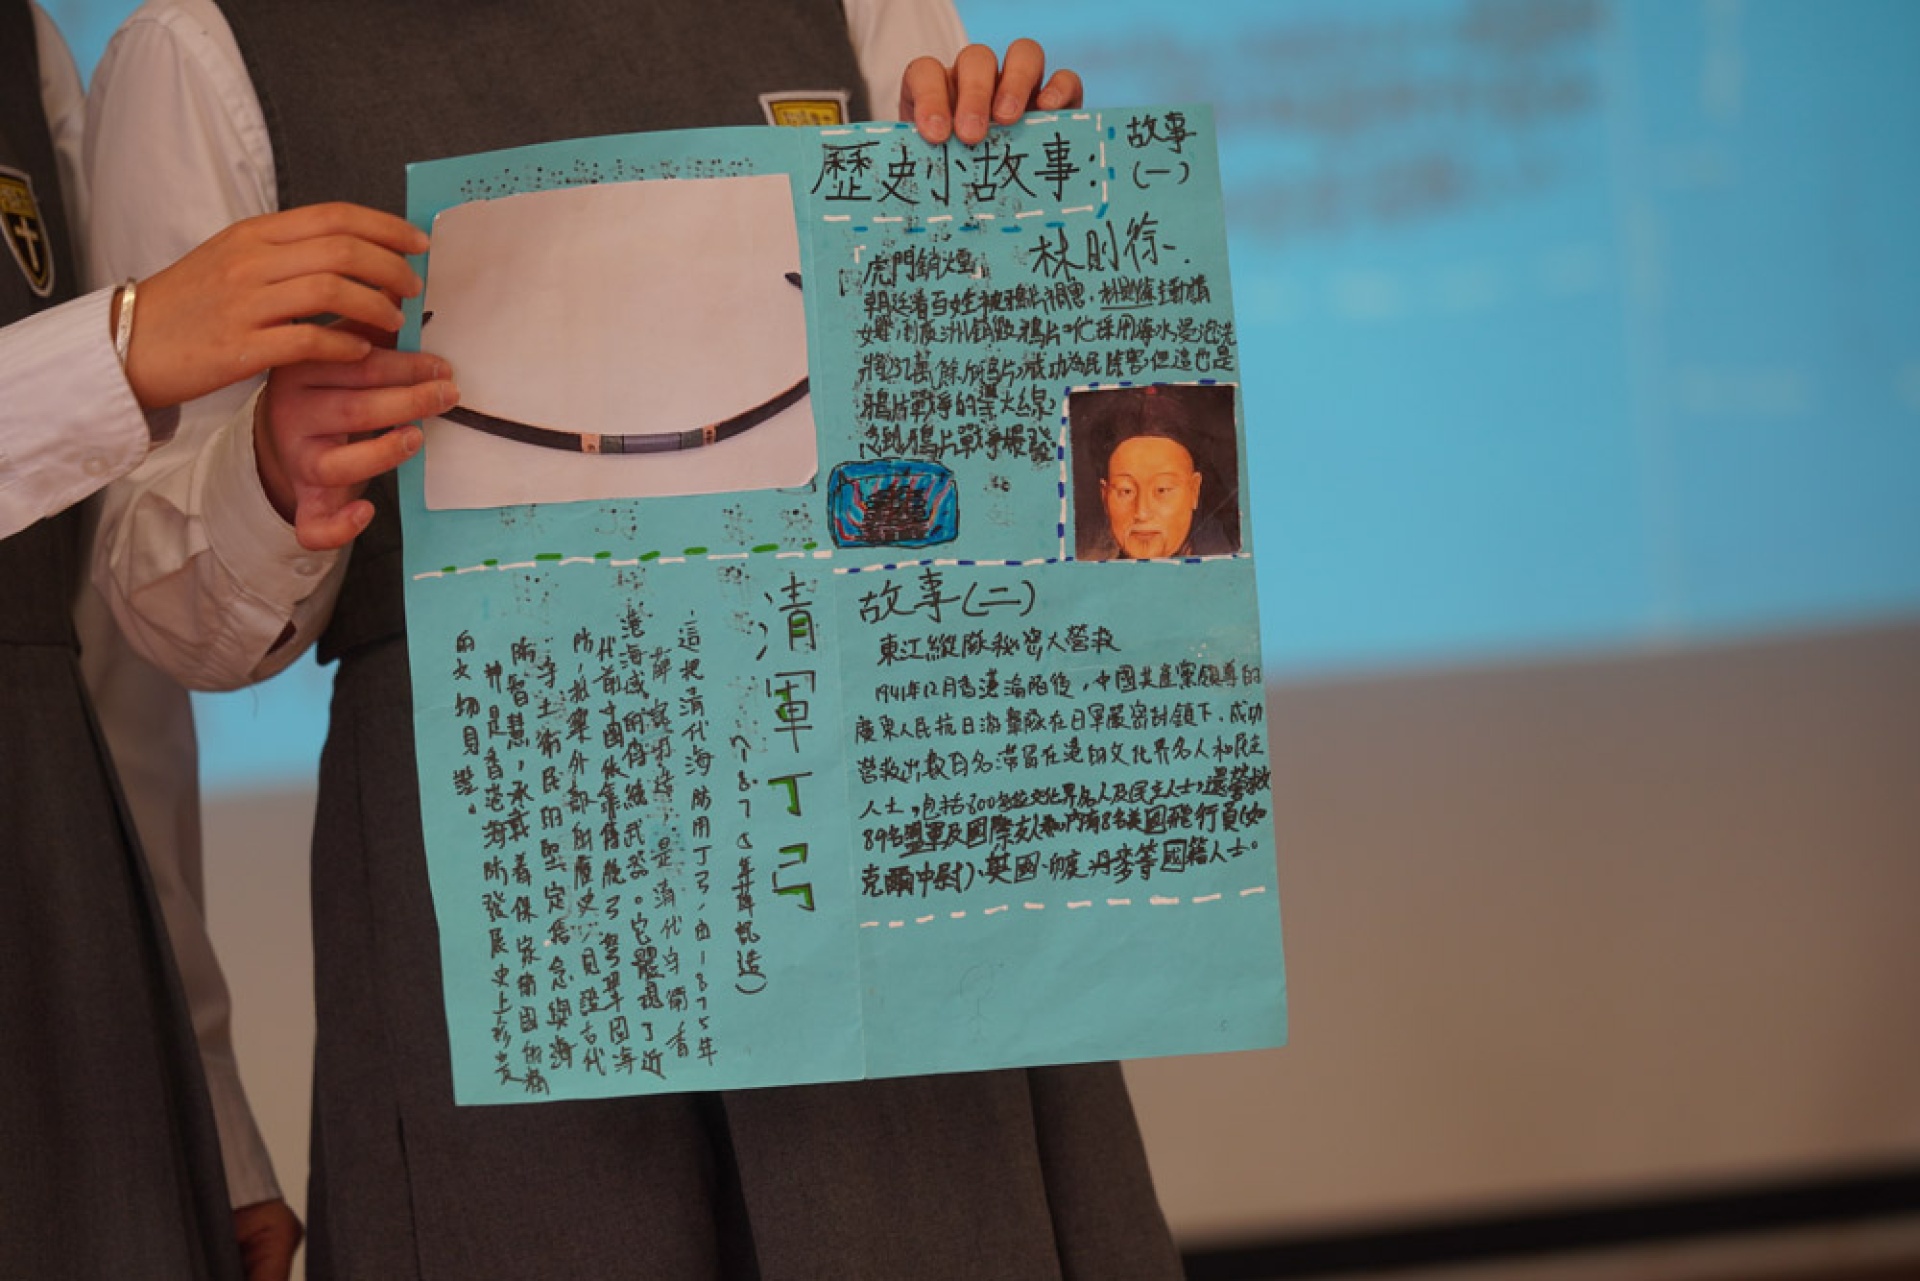 歷史小故事:
故事
(一)
林則徐
虎門銷煙
朝廷看百姓被鴉片禍害,林則徐主動請
鴉片,他採用海水浸泡法
將237萬餘斤鴉片,成功為民除害,但這也是
鴉片戰爭的導火線,
鴉片戰爭爆發
故事(二)
東江縱隊秘密大營救
1941年12月香港淪陷後,中國共產黨領導的
廣東人民抗日游擊隊在日軍嚴密封鎖下,成功
營救出數百名滯留在港的文化界名人和民主
人士,包括300名位文化界名人及民主人士,還營救
89名盟軍及國際友人,內有8名美國飛行員(如
克爾中尉)、英國、印度、丹麥等國籍人士。
清軍丁弓
(1875年薛記造)
這把清代海防用丁弓,由1875年
薛記打造,是清代守衛香
港海域的傳統武器。它體現了近
代前中國依靠傳統弓弩鞏固海
防,抵禦外部的歷史,見證古代
守土衛民的堅定信念與海
防智慧,承載着保家衛國的精
神是香港海防發展史上珍貴
的文物見證。